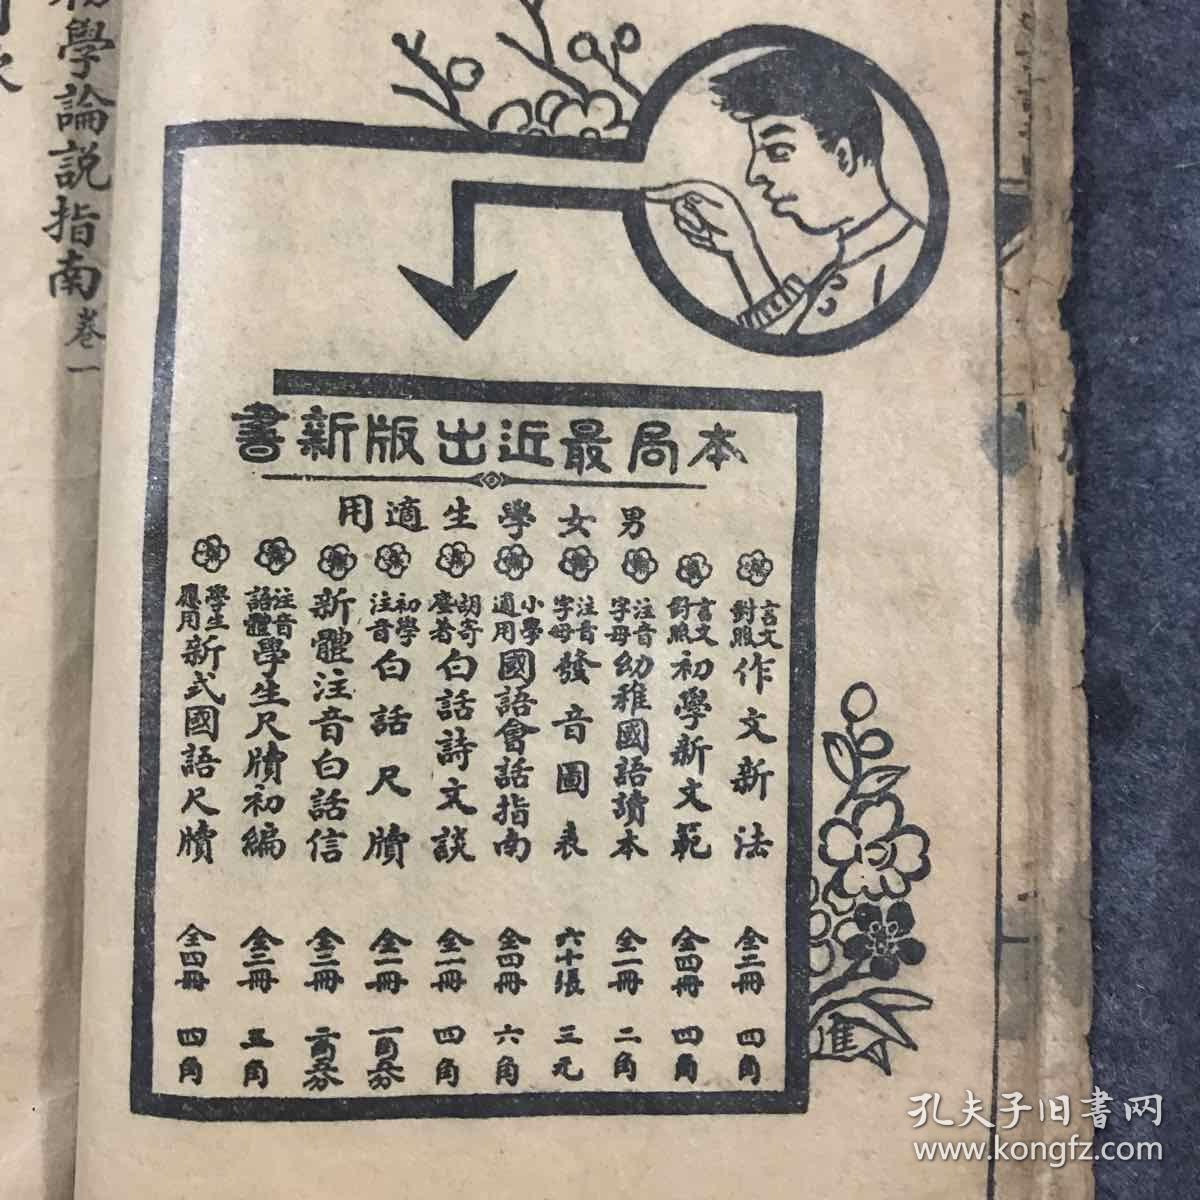 本局最近出版新書
男女學生適用
言文對照作文新法 全二冊 四角
言文對照初學新文範 全四冊 四角
注音字母幼稚國語讀本 全一冊 二角
注音字母發音圖表 六十張 三元
小學適用國語會話指南 全四冊 六角
胡寄塵著白話詩文談 全一冊 四角
初學注音白話尺牘 全二冊 一角五分
新體注音白話信 全三冊 二角五分
注音語體學生尺牘初編 全三冊 五角
學生應用新式國語尺牘 全四冊 四角
進
學論説指南 卷一
孔夫子旧書网
www.kongfz.com